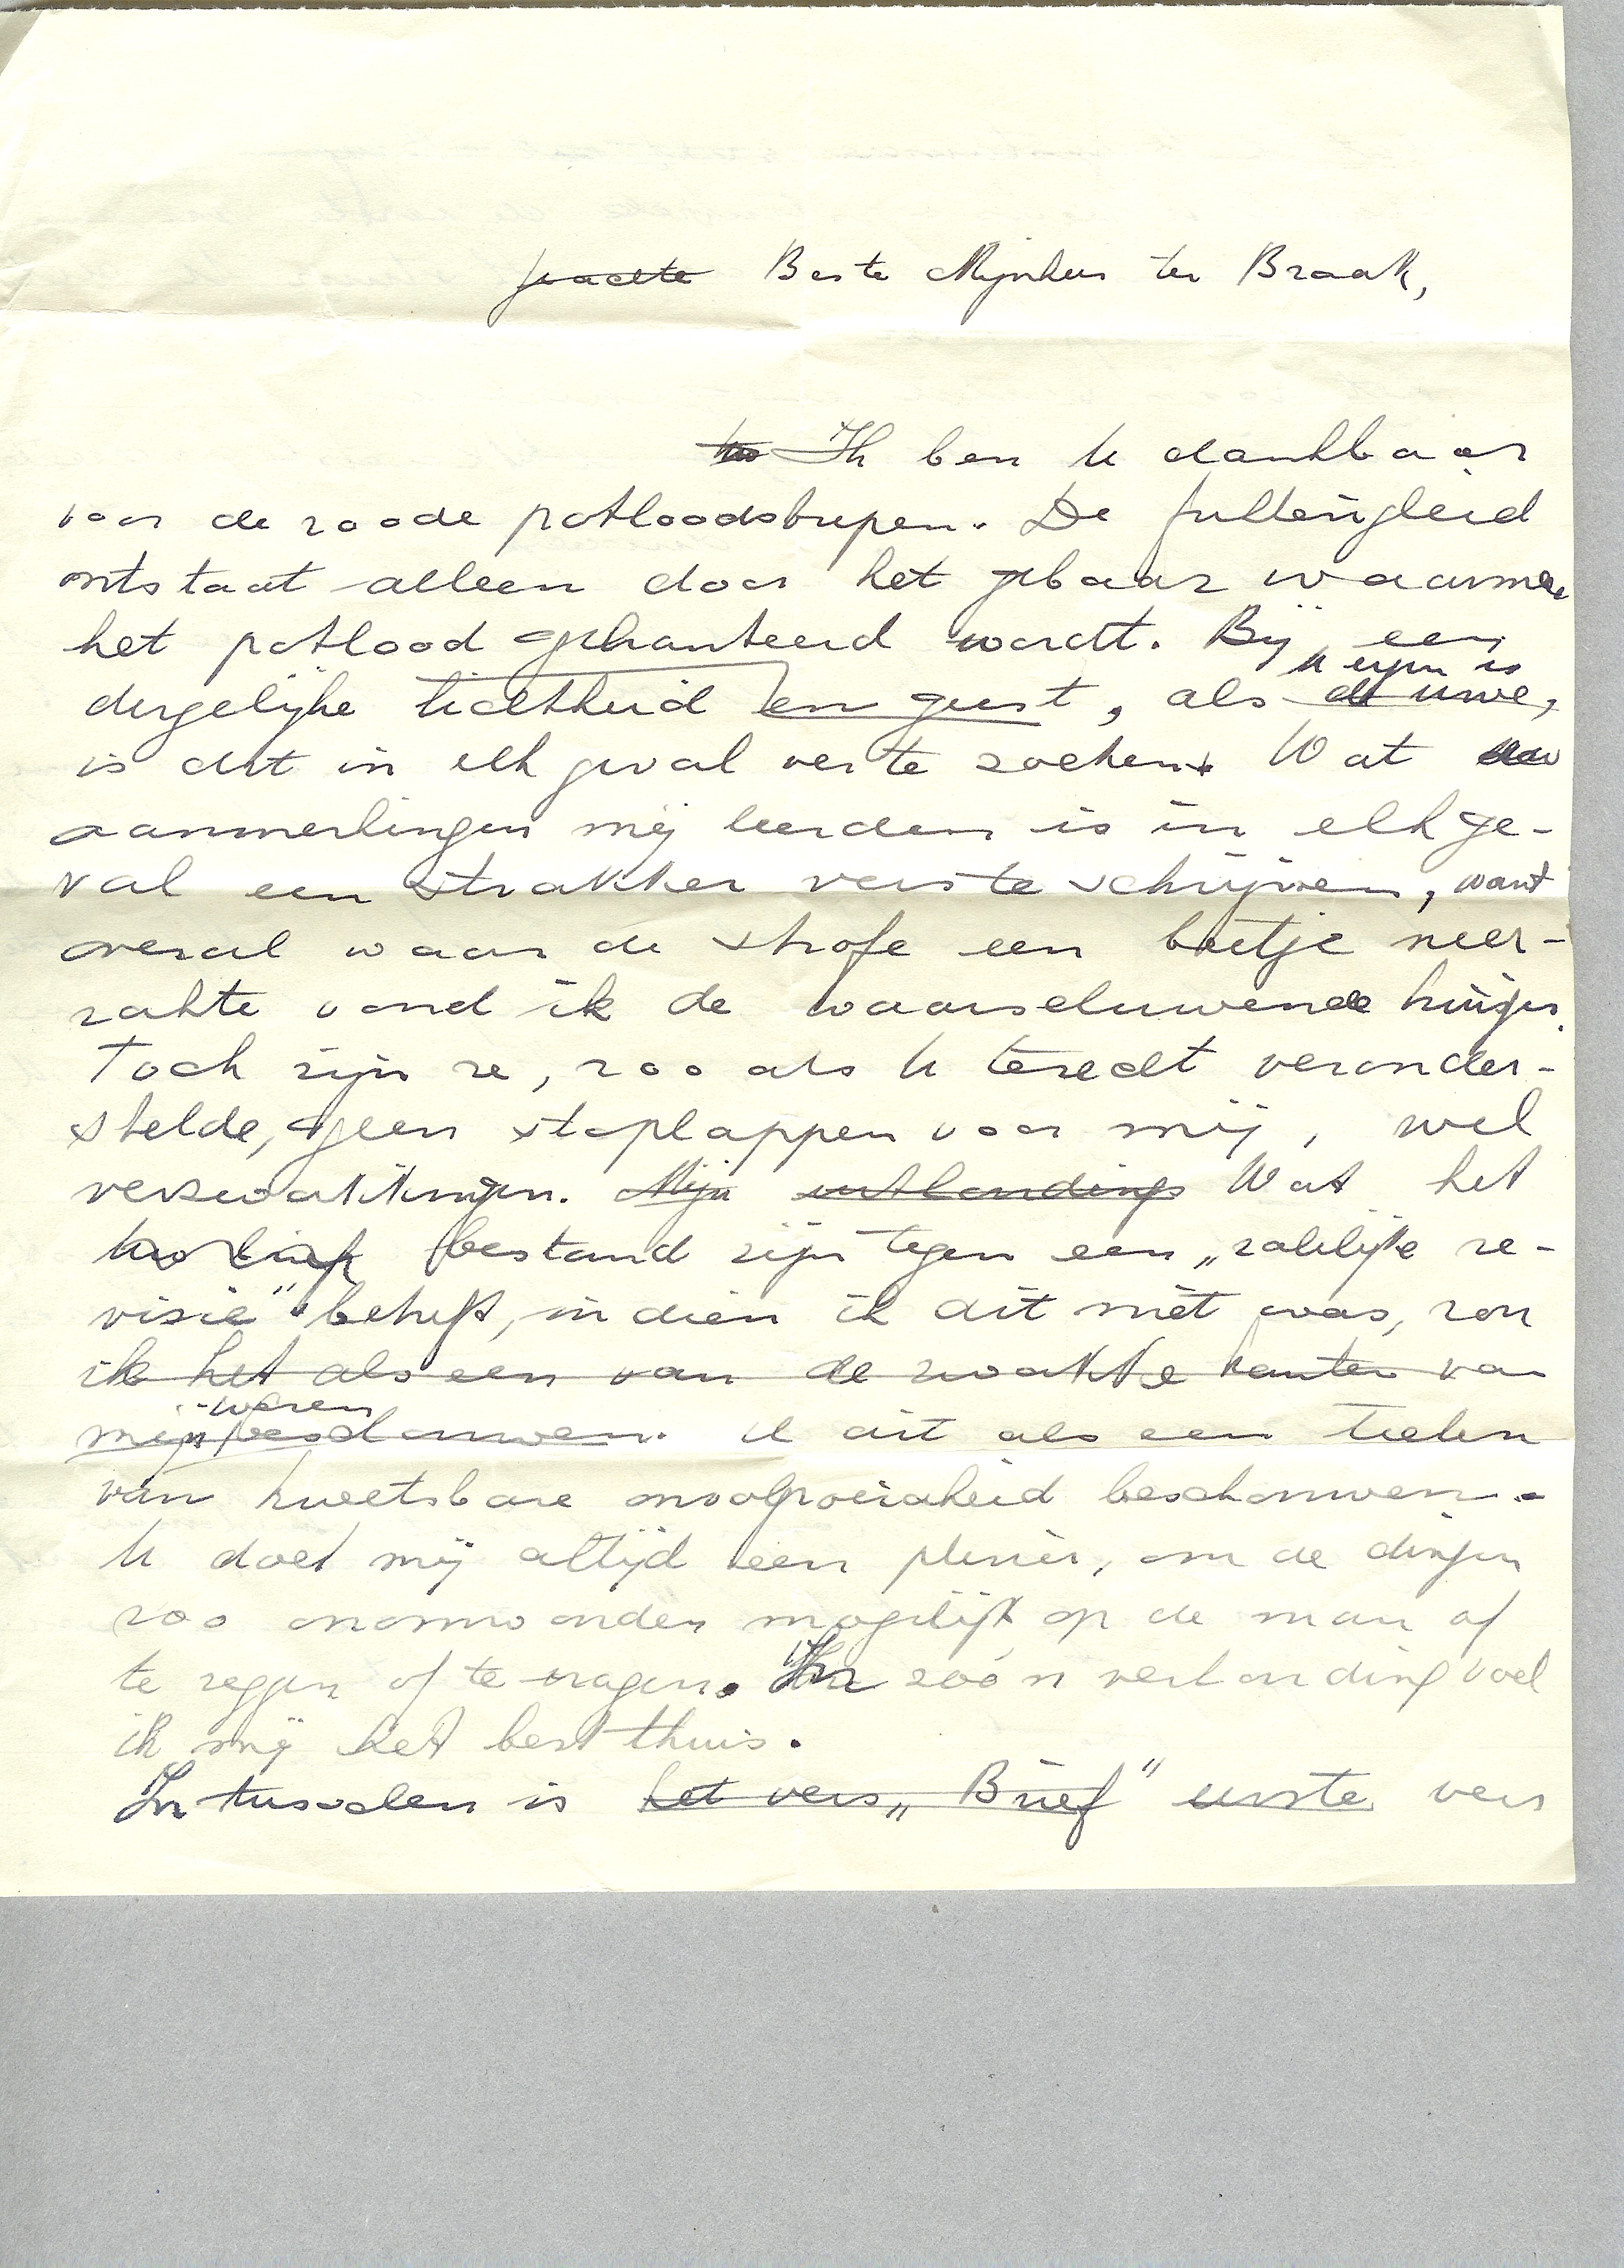 Geachte Beste Mijnheer ter Braak,
Ik ben U dankbaar
voor de roode potloodstrepen. De
ontstaat alleen door het gebaar waarmee
het potlood gehanteerd wordt. Bij een
U eigen is
dergelijke lichtheid en geest, als de uwe,
is dit in elk geval ver te zoeken. Wat uw
aanmerkingen mij leerden is in elk ge-
val een strakker vers te schrijven, want
overal waar de strofe een beetje neer-
zakte vond ik de waarschuwende kruisjes.
Toch zijn ze, zooals U terecht veronder-
stelde, geen stoplappen voor mij, wel
verzwakkingen. Mijn ontlading Wat het
bestand zijn tegen een „zakelijke re-
visie” betreft, indien ik dit niet was, zou
ik het als een van de zwakke kanten van
mijn beschouwen. ik dit als een teeken
van kwetsbare onvolgroeidheid beschouwen.
U doet mij altijd een plezier, om de dingen
zoo onomwonden mogelijk op de man af
te zeggen of te vragen. In zoo'n verhouding voel
ik mij het best thuis.
Intusschen is het vers „Brief” eerste vers